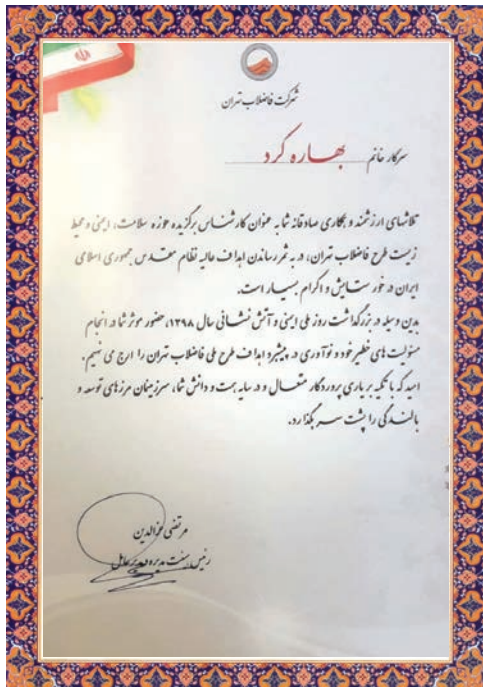 شرکت فاضلاب تهران
سرکار خانم بهاره کرد
تلاشهای ارزشمند و همکاری صادقانه شما به عنوان کارشناس برگزیده حوزه سلامت، ایمنی و محیط
زیست طرح فاضلاب تهران، در به ثمر رساندن اهداف عالیه نظام مقدس جمهوری اسلامی
ایران در خور ستایش و اکرام بسیار است.
بدین وسیله در بزرگداشت روز ملی ایمنی و آتش نشانی سال ۱۳۹۸، حضور موثر شما در انجام
مسئولیت های خطیر خود و نوآوری در پیشبرد اهداف طرح ملی فاضلاب تهران را ارج می نهیم.
امید که با تکیه بر یاری پروردگار متعال و در سایه همت و دانش شما، سرزمینمان مرزهای توسعه و
بالندگی را پشت سر بگذارد.
مرتضی عزالدین
رئیس هیئت مدیره و مدیرعامل